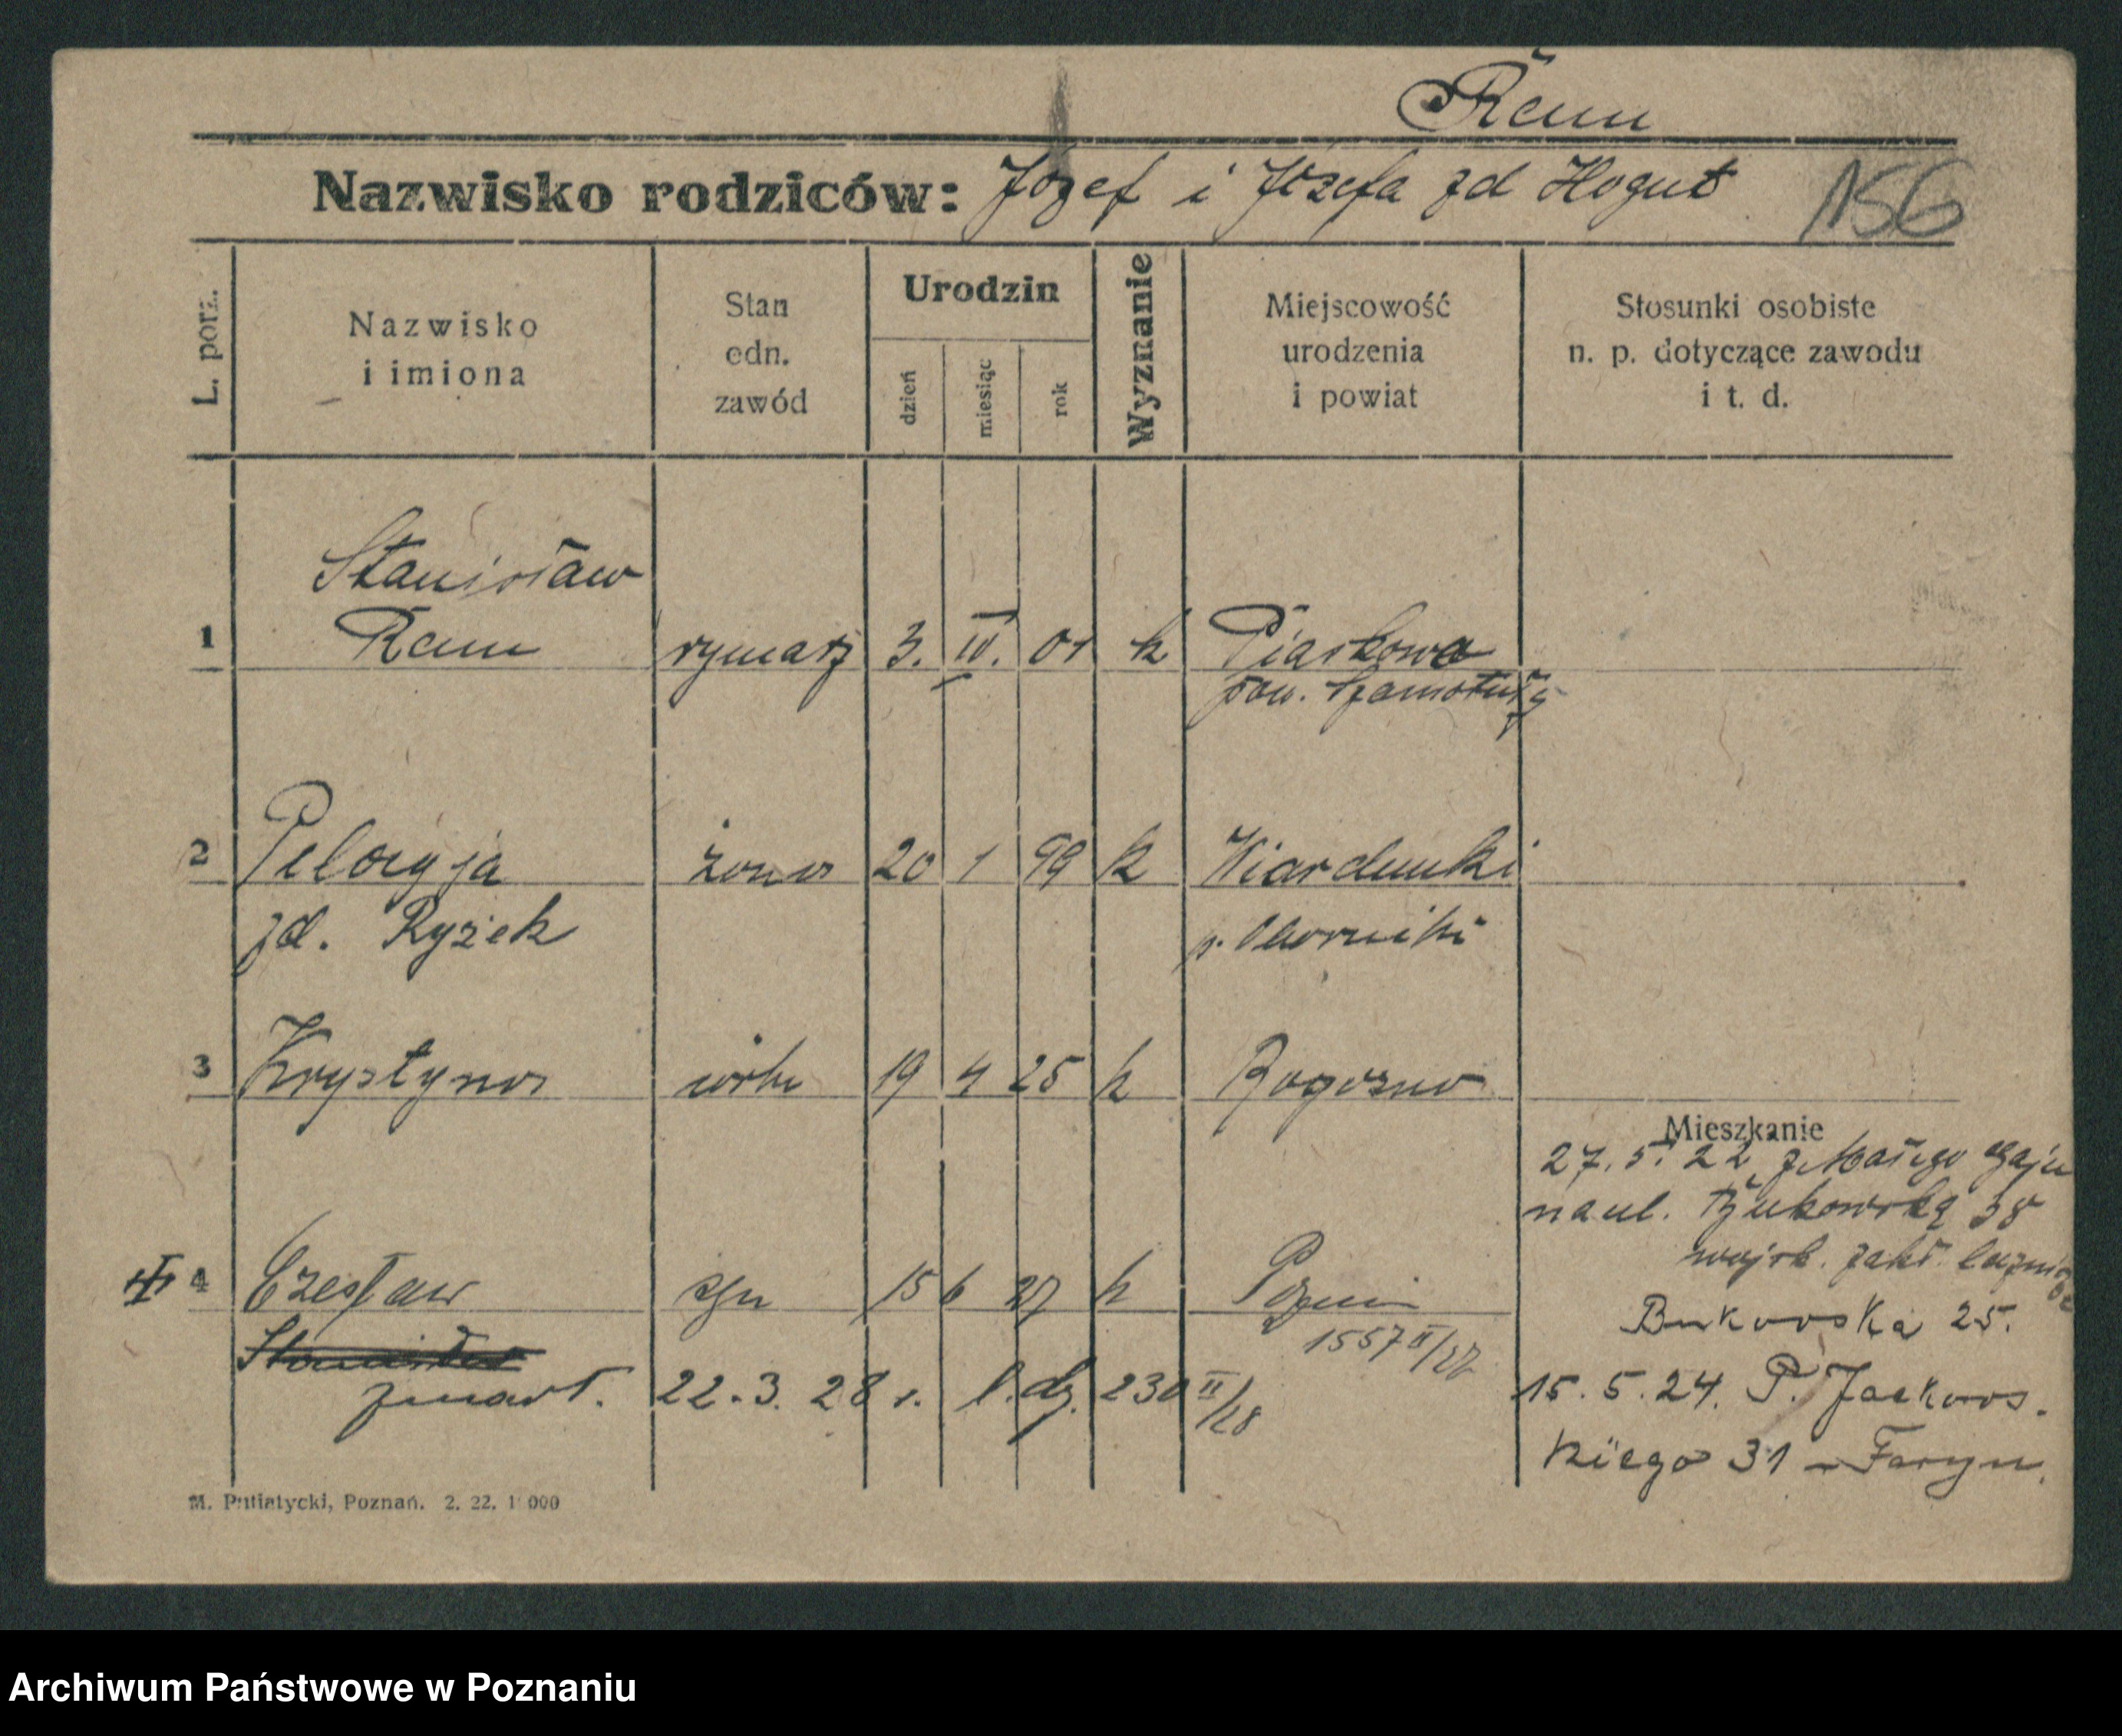 Nazwisko rodziców: Józef i Józefa zd Kogut 156
L. porz.
Nazwisko i imiona
Stan edn. zawód
Urodzin
dzień miesiąc rok
Wyznanie
Miejscowość urodzenia i powiat
Stosunki osobiste n. p. dotyczące zawodu i t. d.
1 Stanisław
rymarz 3. IV. 01 k Piaskowo
pow. Szamotuły
2 Pelagja żona 20 1 99 k Wiardunki
zd. Ryżek p. Oborniki
3 Krystyna córka 19 4 25 k Rogozno
Mieszkanie
27. 5. 22 z Małego Gaju
na ul. Bukowską 38
wojsk. zakł.
4 Czesław syn 15 6 27 k Poznań
Bukowska 25.
1557 II/27
Stanisław
zmarł. 22. 3. 28 r. l. dz. 230 II/28
15. 5. 24. P. Jackows.
kiego 31
M. Putiatycki, Poznań. 2. 22. 1 000
Archiwum Państwowe w Poznaniu